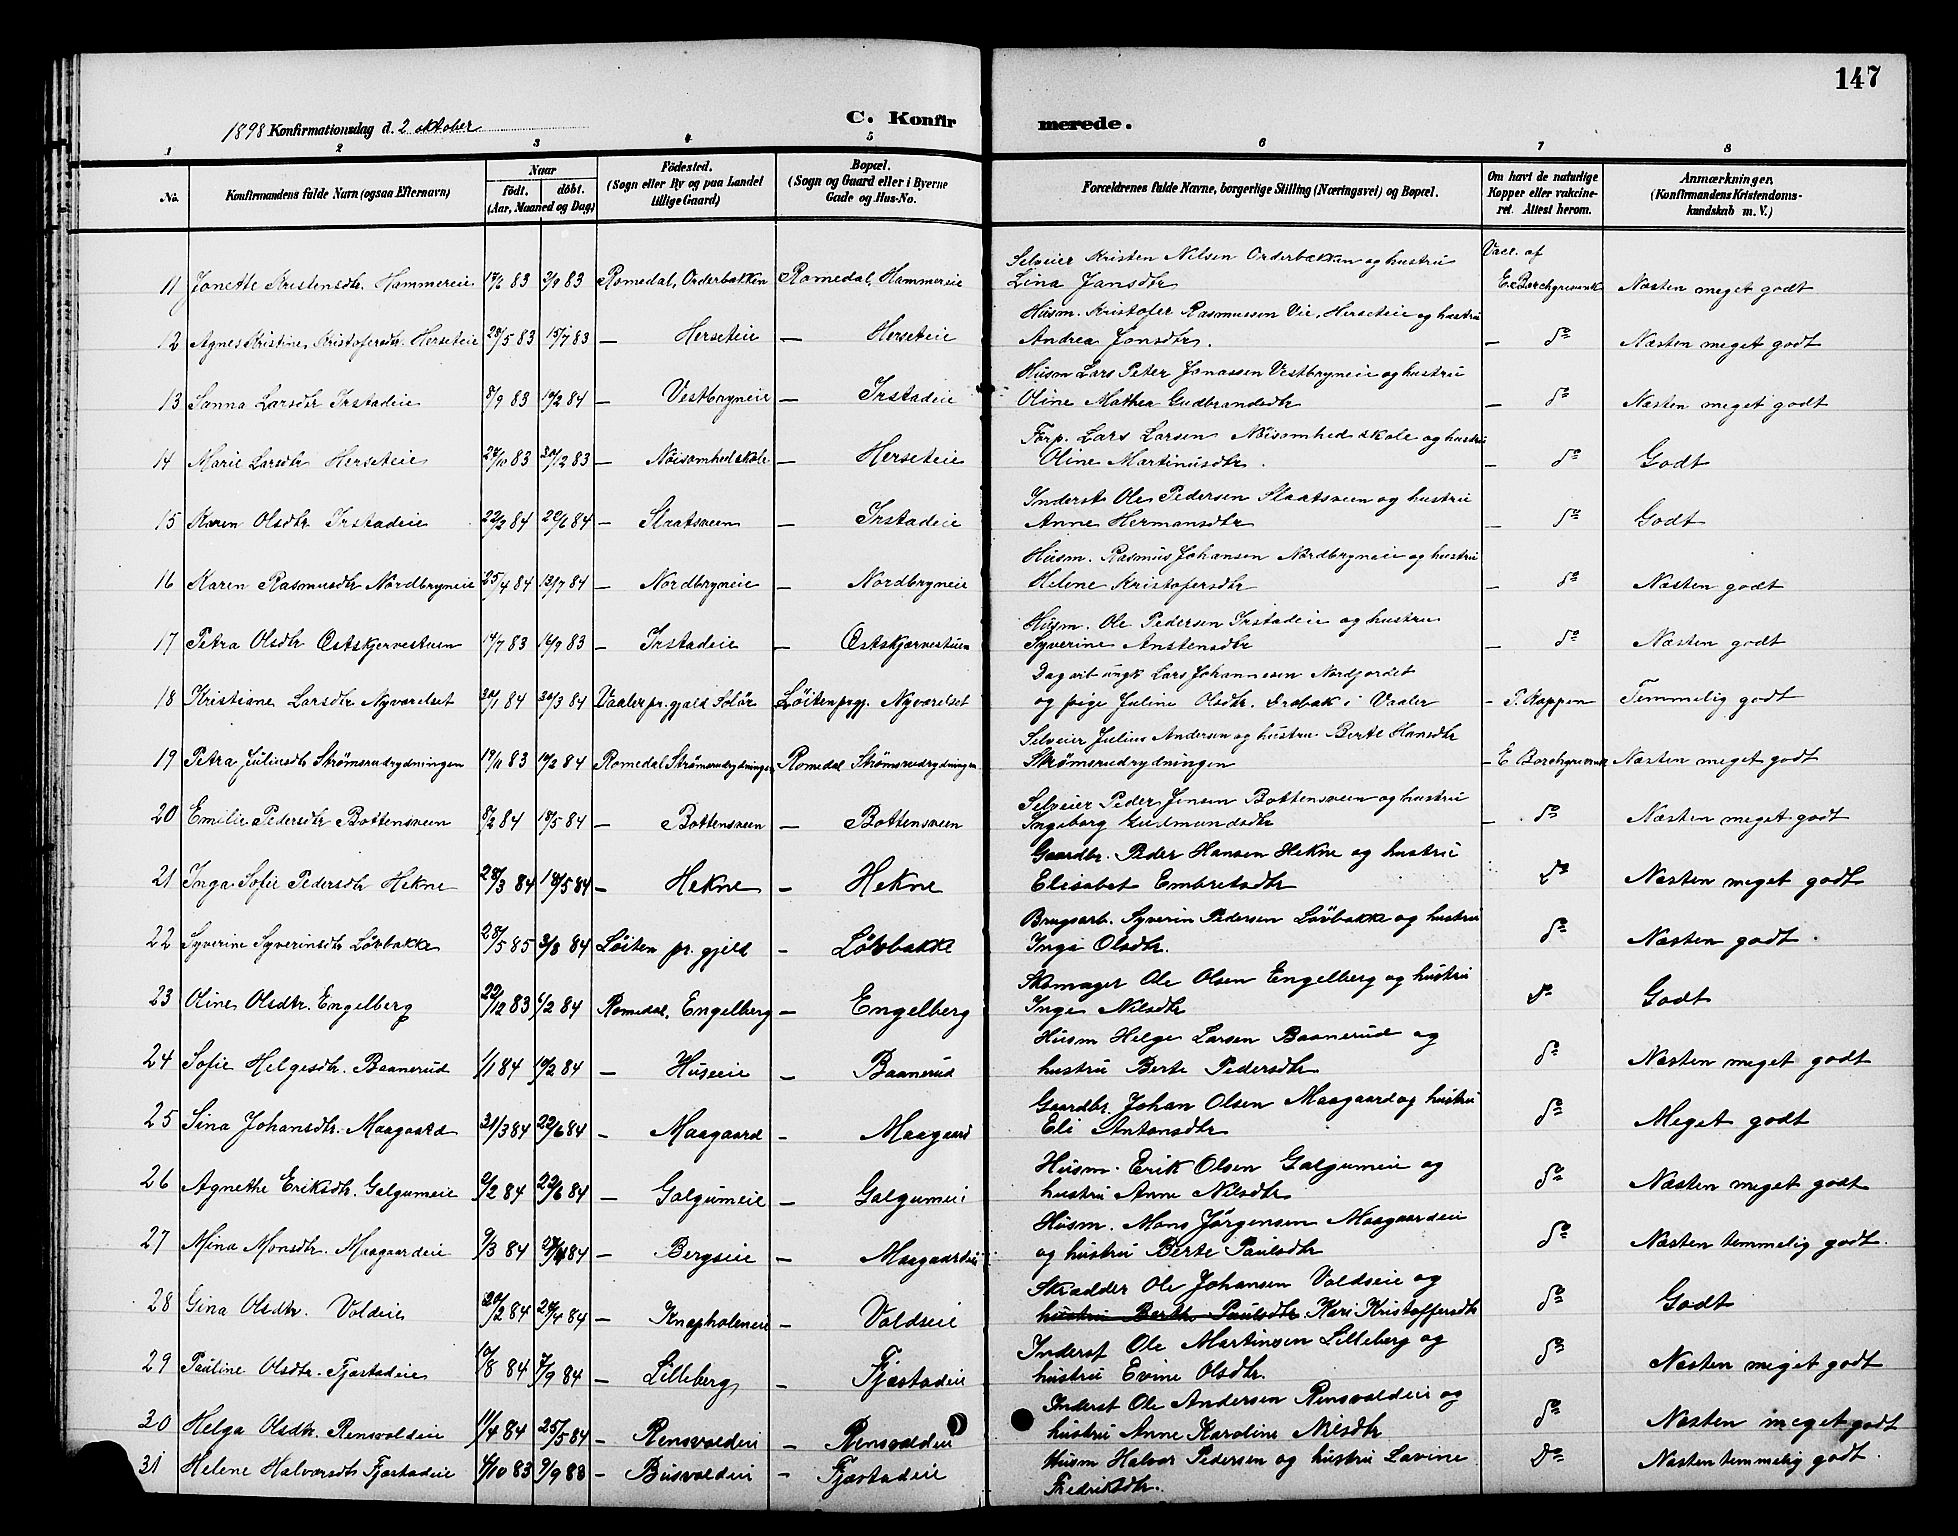 147
1898 Konfirmationsdag d. 2 oktober
C. Konfirmerede.
1 2 3 4 5 6 7 8
No.
Konfirmandens fulde Navn (ogsaa Efternavn)
Naar
født. døbt.
(Aar, Maaned og Dag)
Födested.
(Sogn eller By og paa Landet tillige Gaard)
Bopæl.
(Sogn og Gaard eller i Byerne Gade og Hus-No.
Forældrenes fulde Navne, borgerlige Stilling (Næringsvei) og Bopæl.
Om havt de naturlige Kopper eller vakcineret. Attest herom.
Anmærkninger,
(Konfirmandens Kristendomskundskab m. V.)
11 Jonette Kristensdtr. Hammereie 83 2/9 83 Romedal, Orderbakken Romedal, Hammereie Selveier Kristen Nilsen Orderbakken og hustru Lina Jansdtr Vacc. af E. Borchgrevink Næsten meget godt
12 Agnes Kristine Kristofersdtr. Herseteie 28/5 83 15/7 83 — Herseteie — Herseteie Husm. Kristofer Rasmussen Vie, Herseteie og hustru Andrea Jonsdtr. — do Næsten meget godt
13 Sanna Larsdtr Irstadeie 8/9 83 10/2 84 — Vestbryneie — Irstadeie Husm Lars Peter Jonassen Vestbryneie og hustru Oline Mathea Gudbrandsdtr — do Næsten meget godt
14 Marie Larsdtr Herseteie 29/10 83 30/12 83 — Nøisomhed skole — Herseteie Forp. Lars Larsen Nøisomhed skole og hustru Oline Martinusdtr. — do Godt
15 Karen Olsdtr Irstadeie 22/2 84 29/6 84 — Staatsveen — Irstadeie Inderst Ole Pedersen Staatsveen og hustru Anne Hermansdtr — do Godt
16 Karen Rasmusdtr Nordbryneie 25/4 84 13/7 84 — Nordbryneie — Nordbryneie Husm. Rasmus Johansen Nordbryneie og hustru Helene Kristofersdtr — do Næsten godt
17 Petra Olsdtr Østskjervestuen 14/7 83 16/9 83 — Irstadeie — Østskjervestuen Husm. Ole Pedersen Irstadeie og hustru Syverine Anstensdtr — do Næsten godt
18 Kristiane Larsdtr Nyværelset 20/1 84 30/3 84 Vaaler pr.gjeld Solør Løiten prgj. Nyværelset Dagarb ungk Lars Johannesen Nordjordet og pige Juline Olsdtr. Drobak i Vaaler — P. Kappen Temmelig godt
19 Petra Juliusdtr Strømsrudrydningen 19/11 83 10/2 84 Romedal Strømsrudrydningen Romedal Strømsrudrydningen Selveier Julius Andersen og hustru Berte Hansdtr Strømsrudrydningen — E Borchgrevink Næsten meget godt
20 Emilie Pedersdtr Bottensveen 8/2 84 18/5 84 — Bottensveen — Bottensveen Selveier Peder Jensen Bottensveen og hustru Ingeborg Gudmundsdtr — do Næsten meget godt
21 Inga Sofie Pedersdtr Hekne 28/3 84 18/5 84 — Hekne — Hekne Gaardbr. Peder Hansen Hekne og hustru Elisabet Embretsdtr do Næsten meget godt
22 Syverine Syverinsdtr Løvbakke 28/5 85 3/8 84 Løiten pr. gjeld — Løvbakke Brugsarb. Syverin Pedersen Løvbakke og hustru Inga Olsdtr. do Næsten godt.
23 Oline Olsdtr. Engelberg 22/12 83 /2 84 Romedal, Engelberg — Engelberg Skomager Ole Olsen Engelberg og hustru Inga Nilsdtr do Godt
24 Sofie Helgesdtr. Baanerud 1/1 84 10/2 84 — Huseeie — Baanerud Husm Helge Larsen Baanerud og hustru Berte Pedersdtr do Næsten meget godt
25 Sina Johansdtr. Maagaard 31/3 84 22/6 84 — Maagaard — Maagaard Gaardbr. Johan Olsen Maagaard og hustru Eli Antonsdtr do Meget godt
26 Agnethe Eriksdtr. Galgumeie /2 84 22/6 84 — Galgumeie — Galgumeie Husm. Erik Olsen Galgumeie og hustru Anne Nilsdtr do Næsten meget godt
27 Mina Monsdtr. Maagaardeie 9/3 84 84 — Bergseie — Maagaardeie Husm. Mons Jørgensen Maagaardeie og hustru Berte Paulsdtr do Næsten temmelig godt.
28 Gina Olsdtr. Voldeie 20/2 84 20/4 84 — Knapholmeie — Voldseie Skrædder Ole Johansen Voldseie og hustru Berth Paulsdtr Kari Kristoffersdtr do Godt
29 Pauline Olsdtr. Fjæstadeie 10/8 84 7/9 84 — Lilleberg — Fjæstadeie Inderst Ole Martinsen Lilleberg og hustru Evine Olsdtr. do Næsten meget godt
30 Helga Olsdtr. Rensvoldeie 11/4 84 25/5 84 — Rensvoldeie — Rensvoldeie Inderst Ole Andersen Rensvoldeie og hustru Anne Karoline Nilsdtr do Næsten meget godt
31 Helene Halvorsdtr Fjæstadeie /10 83 9/9 83 — Busvoldeie — Fjæstadeie Husm Halvor Pedersen og hustru Lovine Fredriksdtr. do Næsten temmelig godt.